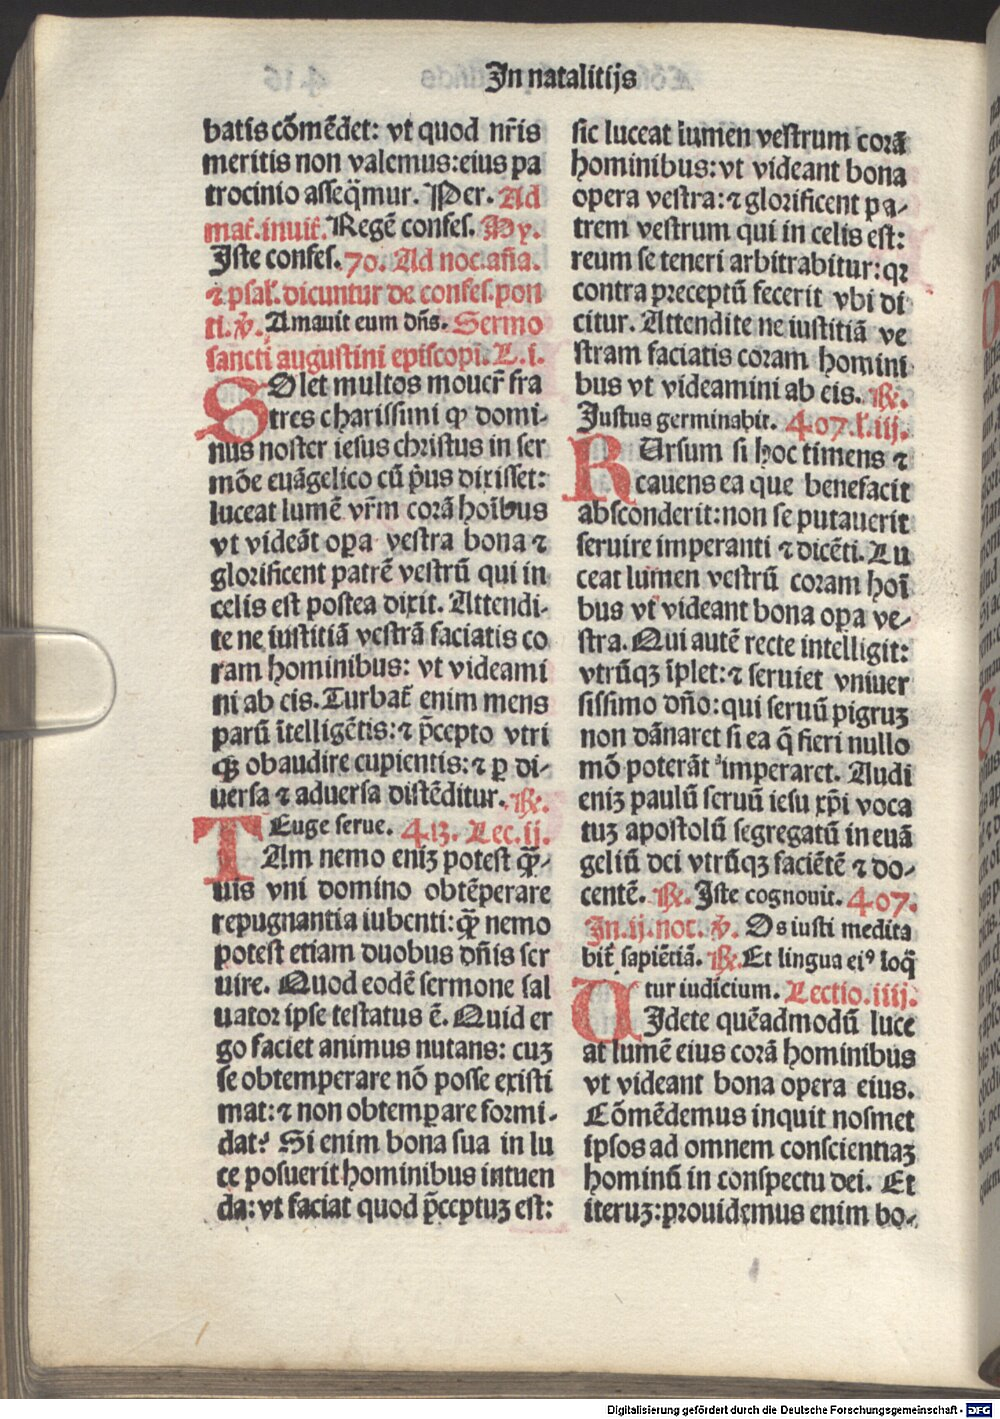 In natalitijs
batis cõmẽdet: vt quod nr̃is
meritis non valemus:eius pa
trocinio asseq̃mur. Per. Ad
mat̃.inuit̃. Regẽ confes. Py.
Iste confes. 70. Ad noc.añа.
⁊ psal̃.dicuntur de confes.pon
ti. ℣. Amauit eum dñs. Sermo
sancti augustini episcopi. L.i.
SOlet multos mouer̃ fra
tres charissimi ꝙ domi-
nus noster iesus christus in ser
mõe euãgelico cũ p̃us dixisset:
luceat lumẽ vr̃m corã hoĩbus
vt videãt oꝑa vestra bona ⁊
glorificent patrẽ vestrũ qui in
celis est postea dixit. Attendi-
te ne iustitiã vestrã faciatis co
ram hominibus: vt videami
ni ab eis. Turbat̃ enim mens
parũ ĩtelligẽtis: ⁊ p̃cepto vtri
qꝫ obaudire cupientis: ⁊ ꝑ di-
uersa ⁊ aduersa distẽditur. ℟.
Euge serue. 413. Lec.ij.
TAm nemo eniꝫ potest q̃-
uis vni domino obtẽperare
repugnantia iubenti: q̃ nemo
potest etiam duobus dñis ser
uire. Quod eodẽ sermone sal
uator ipse testatus ẽ. Quid er
go faciet animus nutans: cuꝫ
se obtemperare nõ posse existi
mat: ⁊ non obtemꝑare formi-
dat? Si enim bona sua in lu
ce posuerit hominibus intuen
da: vt faciat quod p̃ceptuꝫ est:
sic luceat lumen vestrum corã
hominibus: vt videant bona
opera vestra: ⁊ glorificent pa-
trem vestrum qui in celis est:
reum se teneri arbitrabitur: qꝛ
contra preceptũ fecerit vbi di
citur. Attendite ne iustitiã ve
stram faciatis coram homini
bus vt videamini ab eis. ℟.
Iustus germinabit. 407.l̃.iij.
RUrsum si hoc timens ⁊
cauens ea que benefacit
absconderit: non se putauerit
seruire imperanti ⁊ dicẽti. Lu
ceat lumen vestrũ coram hoĩ
bus vt videant bona oꝑa ve-
stra. Qui autẽ recte intelligit:
vtrũqꝫ ĩplet: ⁊ seruiet vniuer
sissimo dño: qui seruũ pigruꝫ
non dãnaret si ea q̃ fieri nullo
mõ poterãt imperaret. Audi
eniꝫ paulũ seruũ iesu xp̃i voca
tuꝫ apostolũ segregatũ in euã
geliũ dei vtrũqꝫ faciẽtẽ ⁊ do-
centẽ. ℟. Iste cognouit. 407.
In.ij.noc. ℣. Os iusti medita
bit̃ sapiẽtiã. ℟. Et lingua eiꝰ loq̃
tur iudicium. Lectio.iiij.
UIdete quẽadmodũ luce
at lumẽ eius corã hominibus
vt videant bona opera eius.
Cõmẽdemus inquit nosmet
ipsos ad omnem conscientiaꝫ
hominũ in conspectu dei. Et
iteruꝫ: prouidemus enim bo-
Digitalisierung gefördert durch die Deutsche Forschungsgemeinschaft - DFG